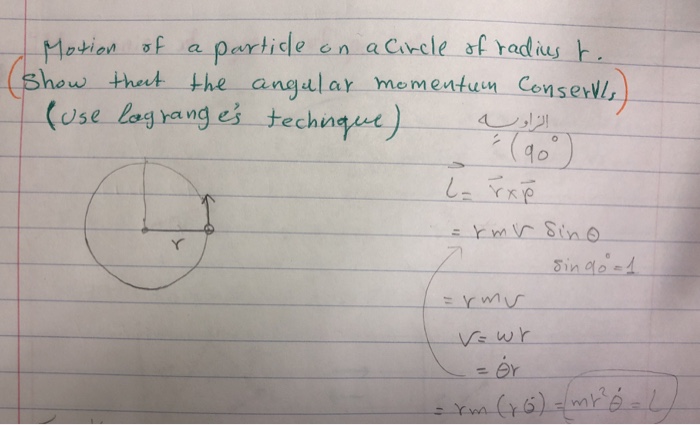 Motion of a particle on a Circle of radius r.
(Show that the angular momentum Conserves)
(Use lagrange's technique)
الزاوية
= (90°)
L = r⃗ x p⃗
= r m v Sin θ
Sin 90° = 1
= r m v
v = w r
= θ̇ r
= r m (r θ̇) = m r² θ̇ = L
r